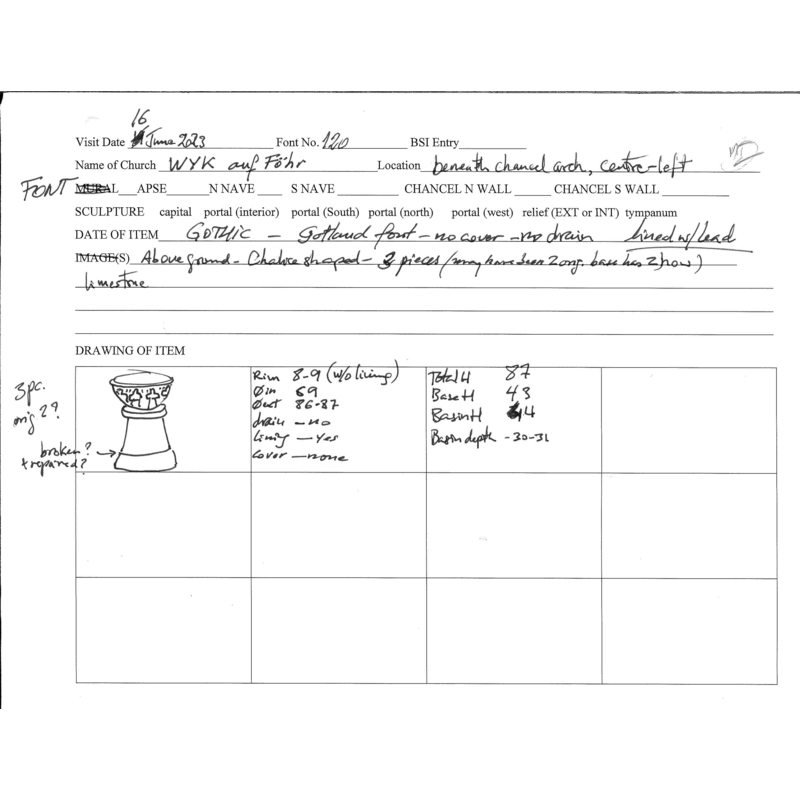 16
Visit Date June 2023 Font No. 120 BSI Entry
Name of Church WYK auf Föhr Location beneath chancel arch, centre-left
FONT MURAL APSE N NAVE S NAVE CHANCEL N WALL CHANCEL S WALL
SCULPTURE capital portal (interior) portal (South) portal (north) portal (west) relief (EXT or INT) tympanum
DATE OF ITEM GOTHIC – Gotland font – no cover – no drain lined w/ lead
IMAGE(S) Above ground – Chalice shaped – 3 pieces (may have been 2 orig. base has 2 now)
limestone
DRAWING OF ITEM
3 pc.
orig 2?
broken?
+ repaired?
Rim 8-9 (w/o lining)
Ø in 69
Ø out 86-87
drain – no
lining – Yes
cover – none
Total H 87
Base H 43
Basin H 44
Basin depth - 30-31